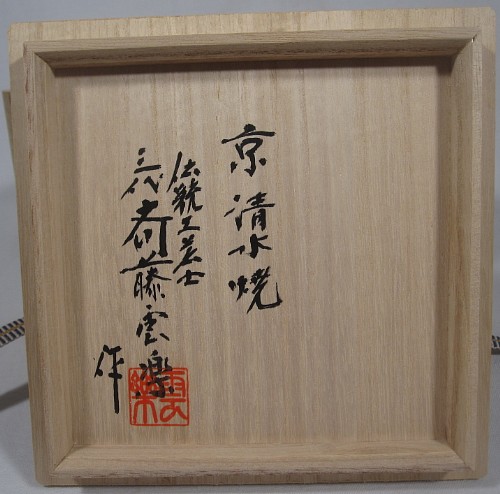 京 清水焼
伝統工芸士
三代 斉藤雲楽
作
雲楽